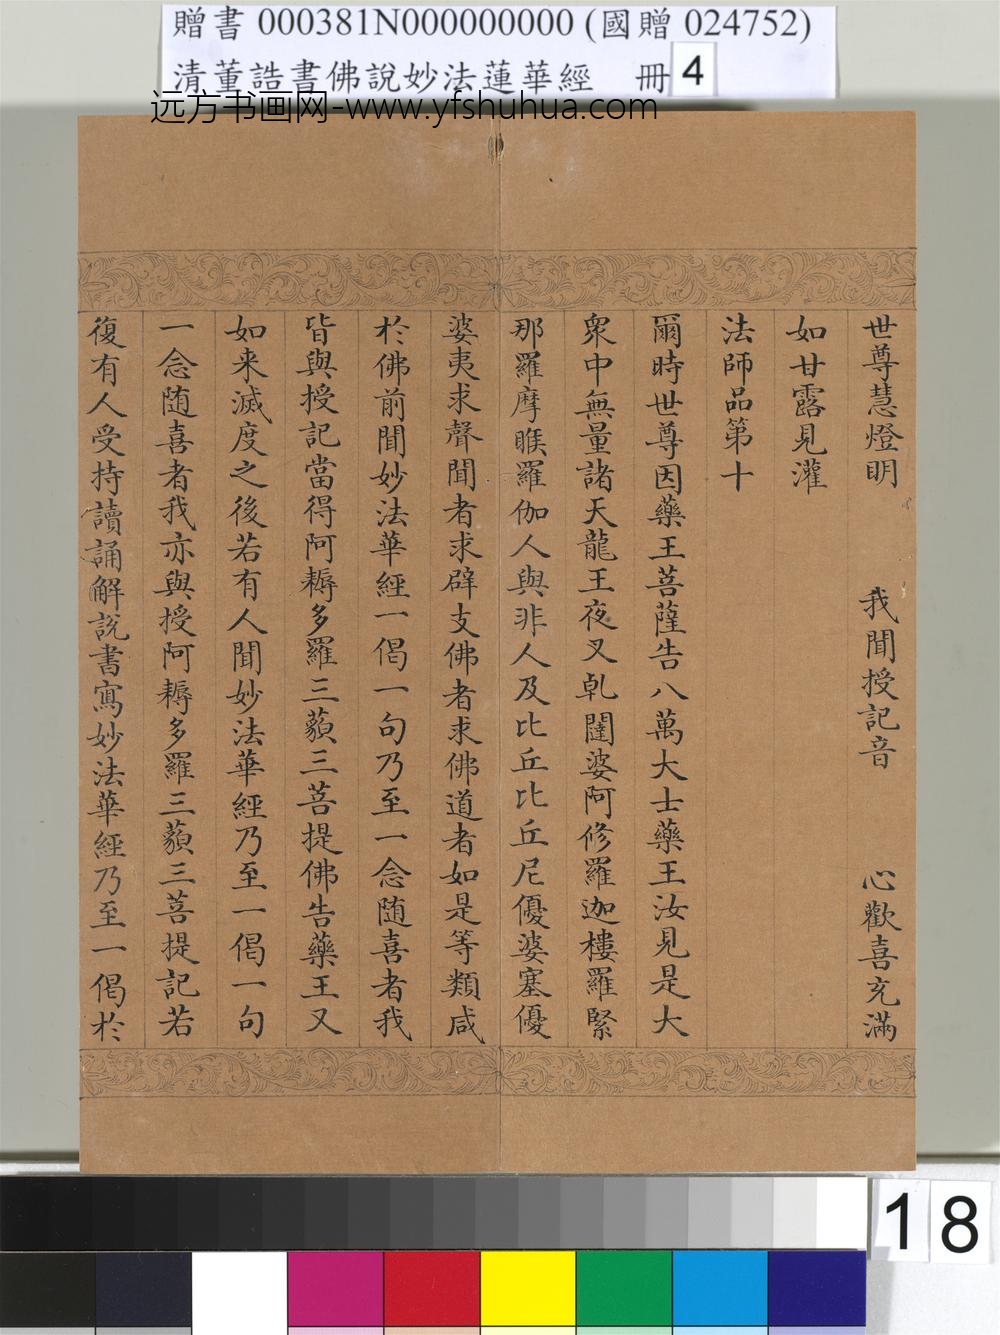 贈書 000381N000000000 (國贈 024752)
清董誥書佛說妙法蓮華經 冊 4
远方书画网-www.yfshuhua.com
世尊慧燈明 我聞授記音 心歡喜充滿
如甘露見灌
法師品第十
爾時世尊因藥王菩薩告八萬大士藥王汝見是大
眾中無量諸天龍王夜叉乹闥婆阿修羅迦樓羅緊
那羅摩睺羅伽人與非人及比丘比丘尼優婆塞優
婆夷求聲聞者求辟支佛者求佛道者如是等類咸
於佛前聞妙法華經一偈一句乃至一念随喜者我
皆與授記當得阿耨多羅三藐三菩提佛告藥王又
如来滅度之後若有人聞妙法華經乃至一偈一句
一念随喜者我亦與授阿耨多羅三藐三菩提記若
復有人受持讀誦解說書寫妙法華經乃至一偈於
18